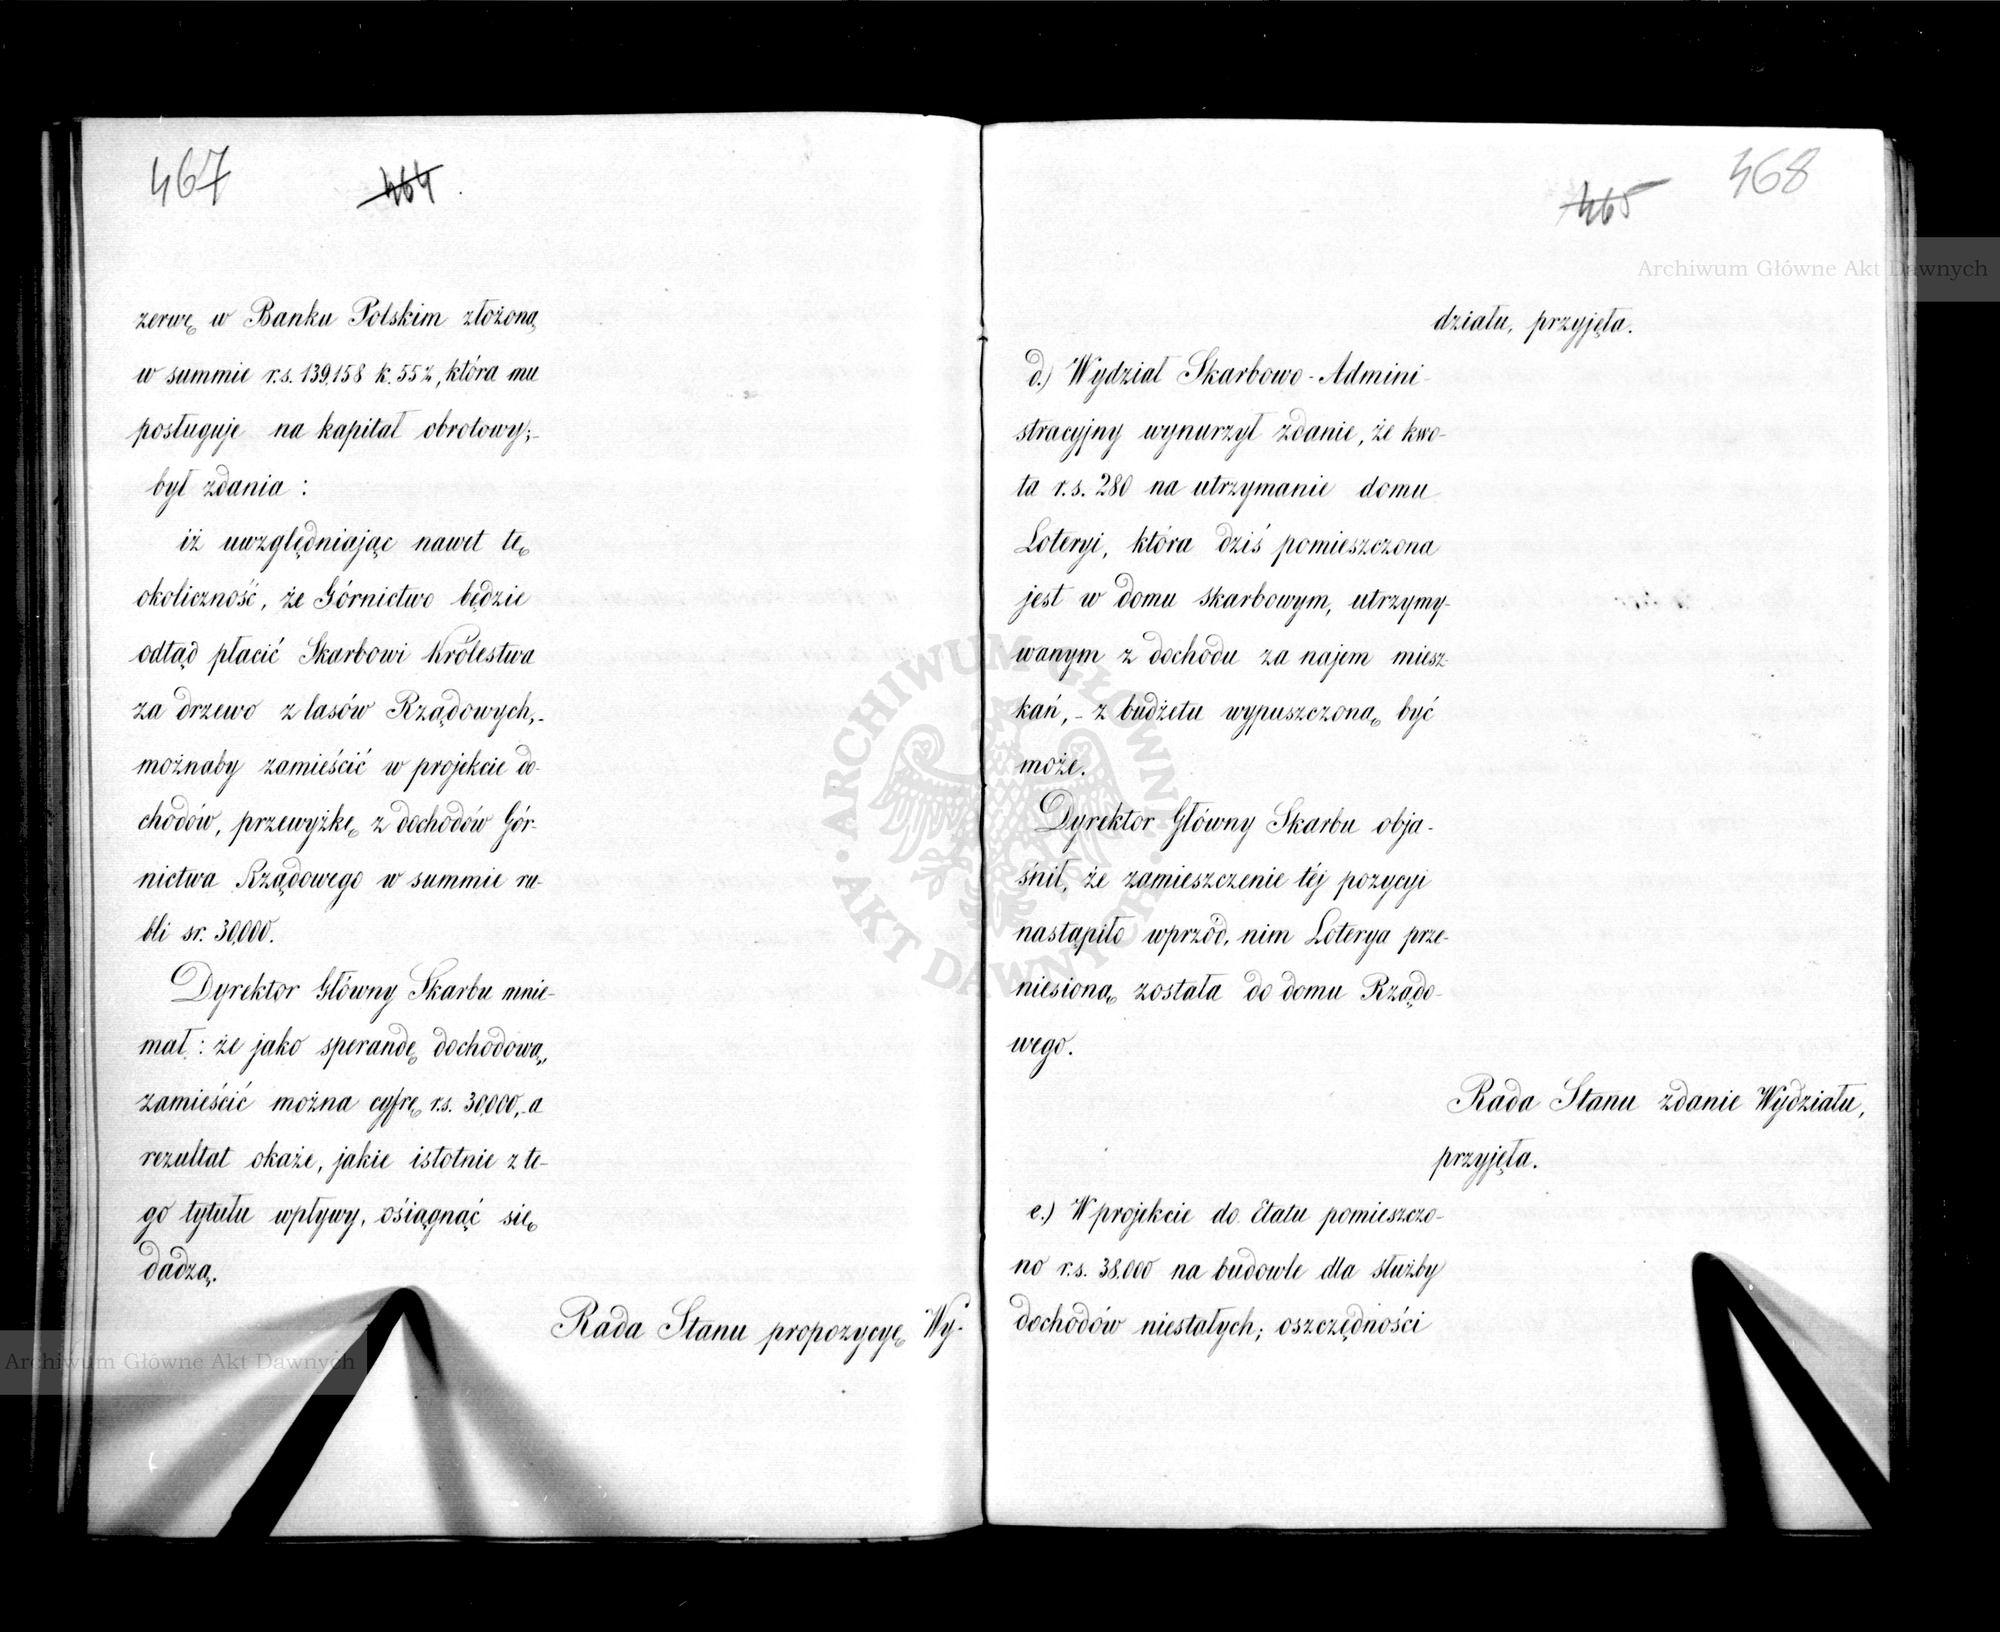 467
464
zerwę w Banku Polskim złożoną
w summie r.s. 139,158 k. 55½, która mu
posługuje na kapitał obrotowy;-
był zdania :
iż uwzględniając nawet tę
okoliczność, że Górnictwo będzie
odtąd płacić Skarbowi Królestwa
za drzewo z lasów Rządowych,-
możnaby zamieścić w projekcie do-
chodów, przewyżkę z dochodów Gór-
nictwa Rządowego w summie ru-
bli sr. 30,000.
Dyrektor Główny Skarbu mnie-
mał : że jako sperandę dochodową,
zamieścić można cyfrę r.s. 30,000,-a
rezultat okaże, jakie istotnie z te-
go tytułu wpływy, osiągnąć się
dadzą.
Rada Stanu propozycyę Wy-
468
465
działu, przyjęła.
d.) Wydział Skarbowo-Admini-
stracyjny wynurzył zdanie, że kwo-
ta r.s. 280 na utrzymanie domu
Loteryi, która dziś pomieszczona
jest w domu skarbowym, utrzymy-
wanym z dochodu za najem miesz-
kań,- z budżetu wypuszczoną być
może.
Dyrektor Główny Skarbu obja-
śnił, że zamieszczenie téj pozycyi
nastąpiło wprzód, nim Loterya prze-
niesioną została do domu Rządo-
wego.
Rada Stanu zdanie Wydziału,
przyjęła.
e.) W projekcie do Etatu pomieszczo-
no r.s. 38.000 na budowle dla służby
dochodów niestałych; oszczędności
Archiwum Główne Akt Dawnych
Archiwum Główne Akt Dawnych
ARCHIWUM GŁÓWNE AKT DAWNYCH